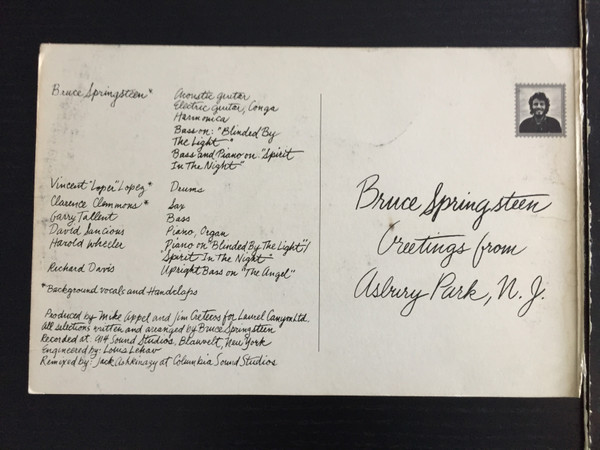 Bruce Springsteen* Acoustic guitar
Electric guitar, Conga
Harmonica
Bass on: "Blinded By
The Light"
Bass and Piano on "Spirit
In The Night"
Vincent "Loper" Lopez* Drums
Clarence Clemmons* Sax
Garry Tallent Bass
David Sancious Piano, Organ
Harold Wheeler Piano on "Blinded By The Light"/
"Spirit In The Night"
Richard Davis Upright Bass on "The Angel"
*Background vocals and Handclaps
Produced by Mike Appel and Jim Cretecos for Laurel Canyon Ltd.
All selections written and arranged by Bruce Springsteen
Recorded at: 914 Sound Studios, Blauvelt, New York
Engineered by: Louis Lehav
Remixed by: Jack Ashkinazy at Columbia Sound Studios
Bruce Springsteen
Greetings from
Asbury Park, N.J.